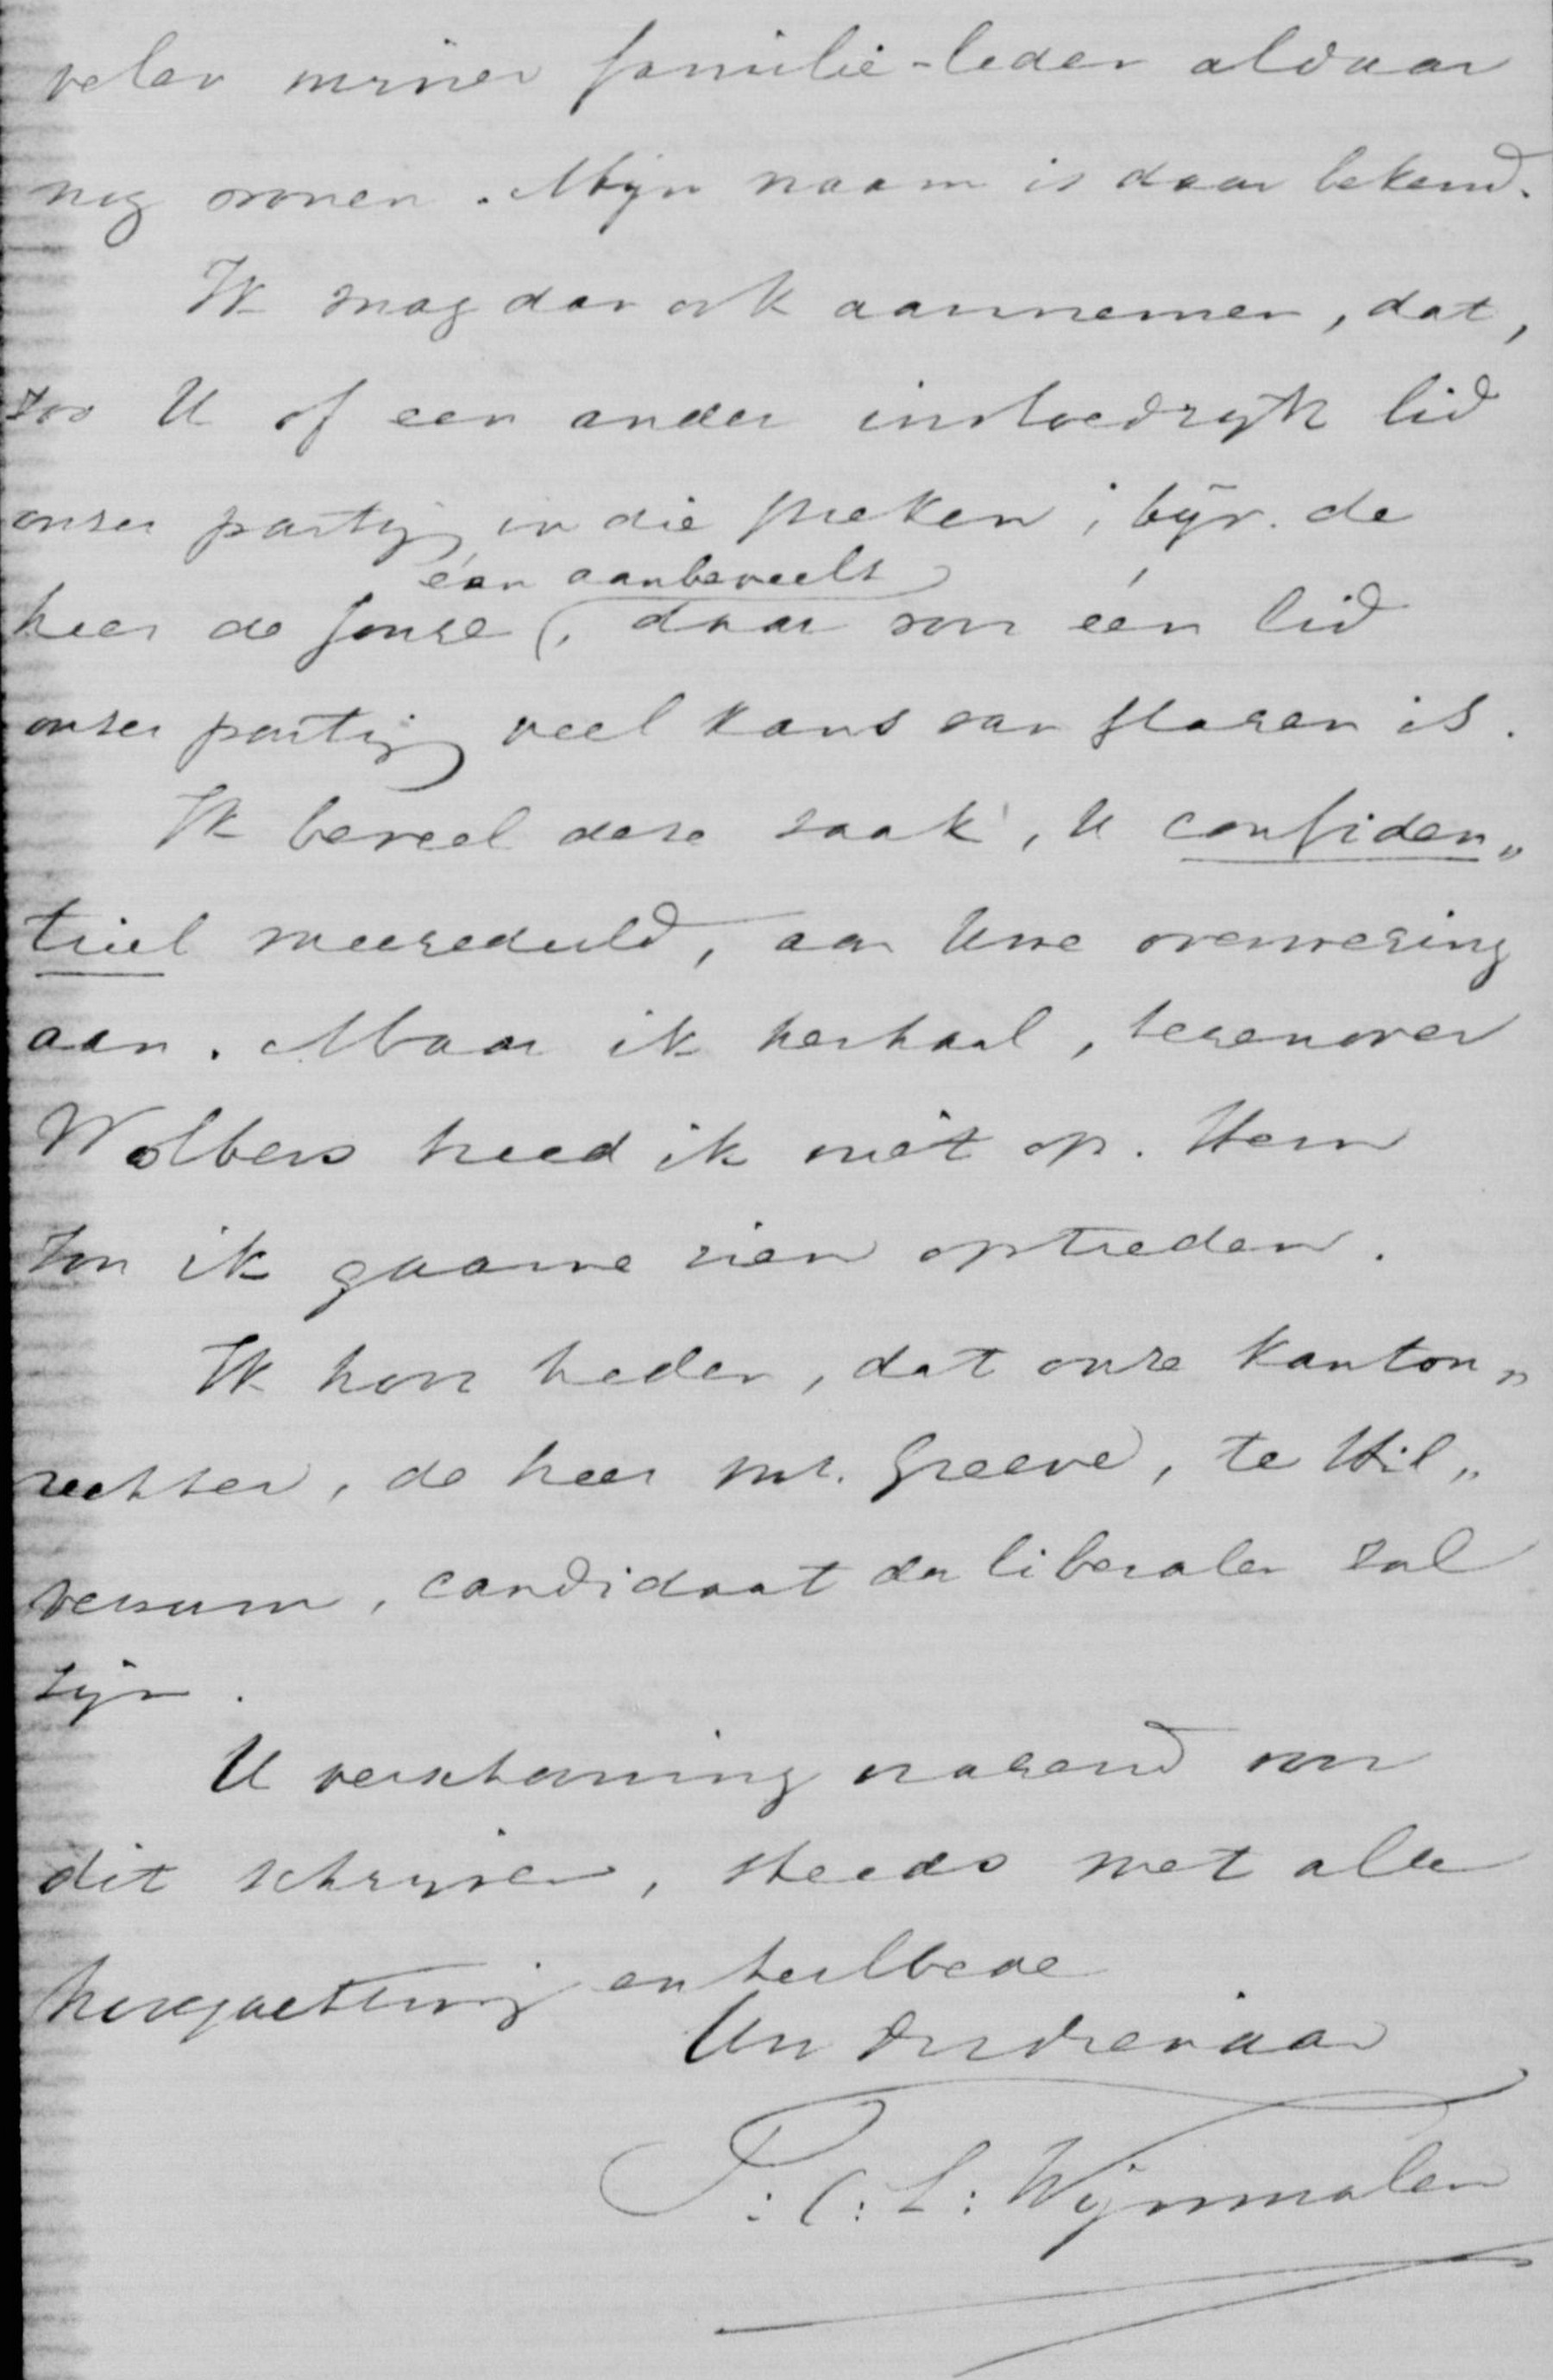 velen mijner familie-leden aldaar
nog wonen. Mijn naam is daar bekend.
Ik mag dan ook aannemen, dat,
zoo U of een ander invloedrijk lid
onzer partij in die streken, bijv. de
één aanbeveelt
heer de Jonge, daar voor één lid
onzer partij veel kans van slagen is.
Ik beveel deze zaak, U confiden„
tiel meegedeeld, aan Uwe overweging
aan. Maar ik herhaal, tegenover
Wolbers treed ik niet op. Hem
zou ik gaarne zien optreden.
Ik hoor heden, dat onze kanton„
rechter, de heer mr. Greeve, te Hil„
versum, candidaat der liberalen zal
zijn.
U verschooning vragend voor
dit schrijven, steeds met alle
hoogachting en heilbede
Uw dw dienaar
T: C: L: Wijnmalen